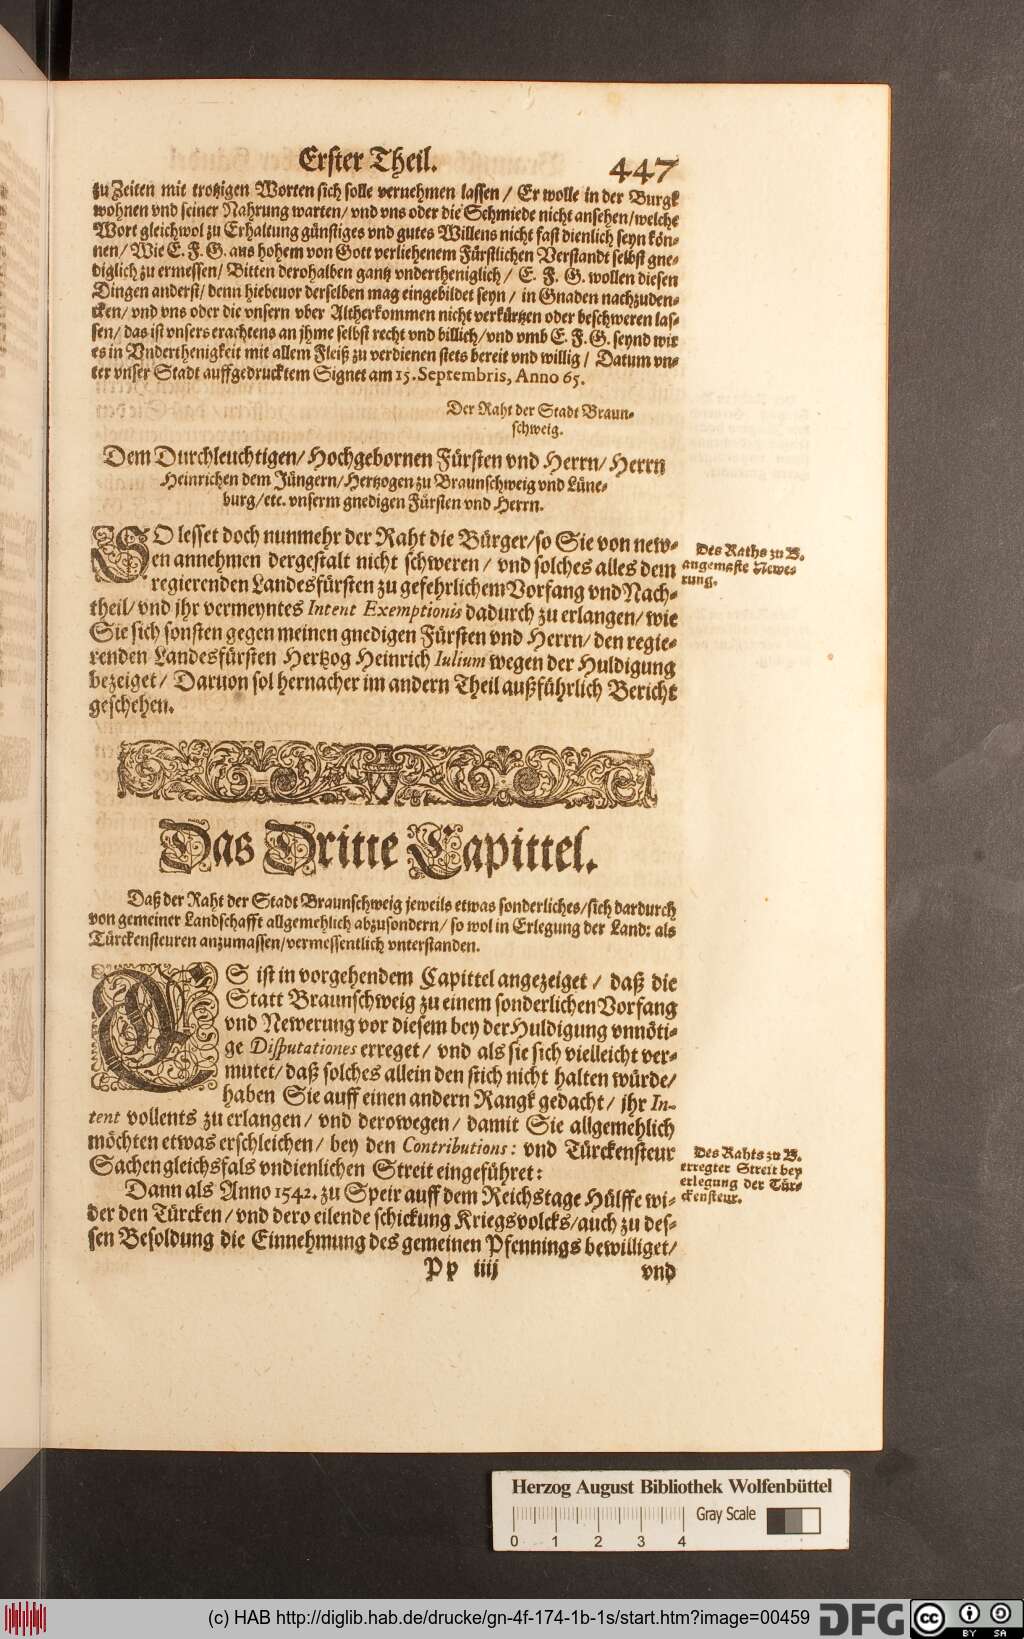 Erster Theil. 447
zu Zeiten mit trotzigen Worten sich solle vernehmen lassen / Er wolle in der Burgk
wohnen vnd seiner Nahrung warten/ vnd vns oder die Schmiede nicht ansehen/welche
Wort gleichwol zu Erhaltung günstiges vnd gutes Willens nicht fast dienlich seyn kön-
nen/ Wie E. F. G. aus hohem von Gott verliehenem Fürstlichen Verstandt selbst gne-
diglich zu ermessen/ Bitten derohalben gantz vndertheniglich / E. F. G. wollen diesen
Dingen anderst/ denn hiebeuor derselben mag eingebildet seyn / in Gnaden nachzuden-
cken/ vnd vns oder die vnsern vber Altherkommen nicht verkürtzen oder beschweren las-
sen/ das ist vnsers erachtens an ihme selbst recht vnd billich/vnd vmb E. F. G. seynd wir
es in Vnderthenigkeit mit allem Fleiß zu verdienen stets bereit vnd willig / Datum vn-
ter vnser Stadt auffgedrucktem Signet am 15. Septembris, Anno 65.
Der Raht der Stadt Braun-
schweig.
Dem Durchleuchtigen/ Hochgebornen Fürsten vnd Herrn/ Herrn
Heinrichen dem Jüngern/ Hertzogen zu Braunschweig vnd Lüne-
burg/etc. vnserm gnedigen Fürsten vnd Herrn.
SO lesset doch nunmehr der Raht die Bürger/so Sie von new-
en annehmen dergestalt nicht schweren / vnd solches alles dem
regierenden Landesfürsten zu gefehrlichem Vorfang vnd Nach-
theil/ vnd jhr vermeyntes Intent Exemptionis dadurch zu erlangen/ wie
Sie sich sonsten gegen meinen gnedigen Fürsten vnd Herrn/ den regie-
renden Landesfürsten Hertzog Heinrich Iulium wegen der Huldigung
bezeiget/ Daruon sol hernacher im andern Theil außführlich Bericht
geschehen.
Des Raths zu B.
angemaste Newe-
rung.
Das Dritte Capittel.
Daß der Raht der Stadt Braunschweig jeweils etwas sonderliches/sich dardurch
von gemeiner Landschafft allgemehlich abzusondern/ so wol in Erlegung der Land: als
Türckensteuren anzumassen/vermessentlich vnterstanden.
ES ist in vorgehendem Capittel angezeiget / daß die
Statt Braunschweig zu einem sonderlichen Vorfang
vnd Newerung vor diesem bey der Huldigung vnnöti-
ge Disputationes erreget / vnd als sie sich vielleicht ver-
mutet/ daß solches allein den stich nicht halten würde/
haben Sie auff einen andern Rangk gedacht / jhr In-
tent vollents zu erlangen/ vnd derowegen/ damit Sie allgemehlich
möchten etwas erschleichen/ bey den Contributions: vnd Türckensteur
Sachen gleichsfals vndienlichen Streit eingeführet:
Des Rahts zu B.
erregter Streit bey
erlegung der Tür-
ckensteur.
Dann als Anno 1542. zu Speir auff dem Reichstage Hülffe wi-
der den Türcken/ vnd dero eilende schickung Kriegsvolcks/auch zu des-
sen Besoldung die Einnehmung des gemeinen Pfennings bewilliget/
Pp iiij vnd
Herzog August Bibliothek Wolfenbüttel
Gray Scale
0 1 2 3 4
(c) HAB http://diglib.hab.de/drucke/gn-4f-174-1b-1s/start.htm?image=00459
DFG
cc BY SA